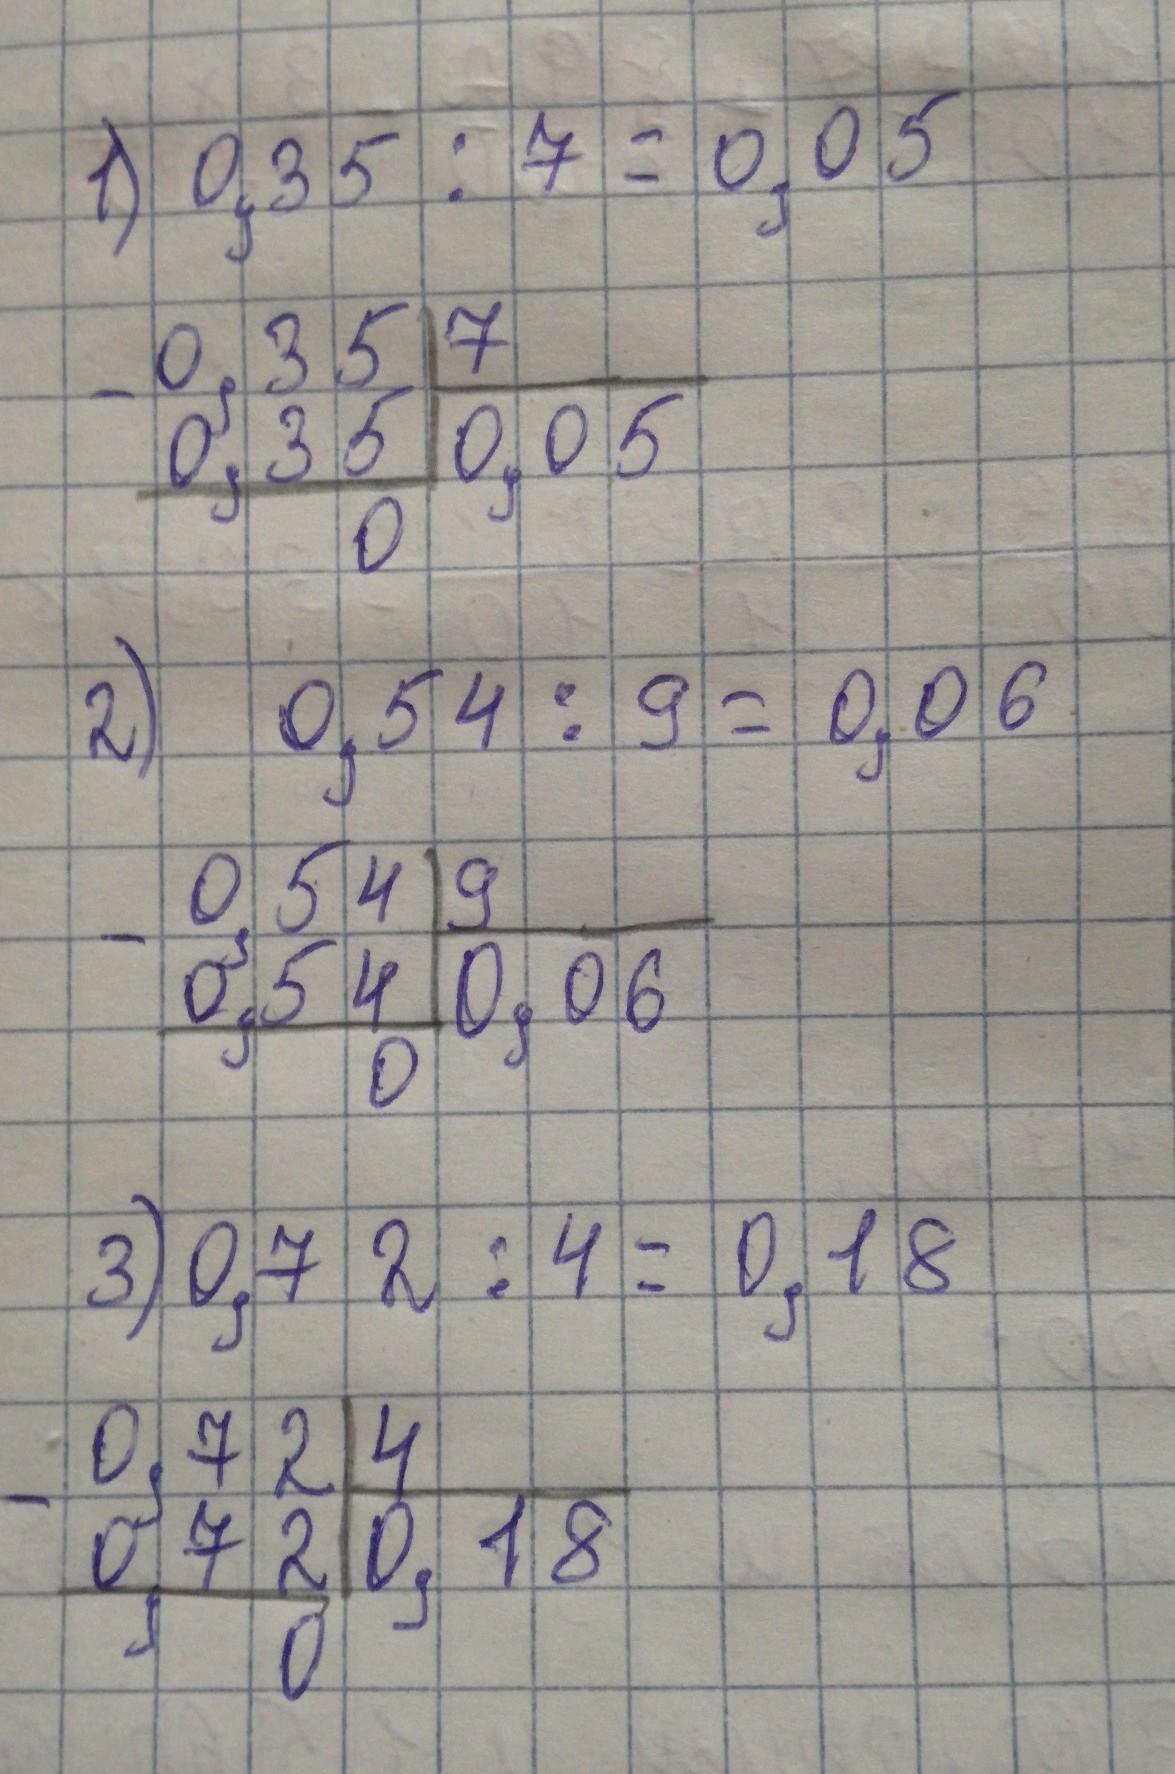 1) 0,35 : 7 = 0,05
- 0,35 | 7
0,35 | 0,05
0
2) 0,54 : 9 = 0,06
- 0,54 | 9
0,54 | 0,06
0
3) 0,72 : 4 = 0,18
- 0,72 | 4
0,72 | 0,18
0